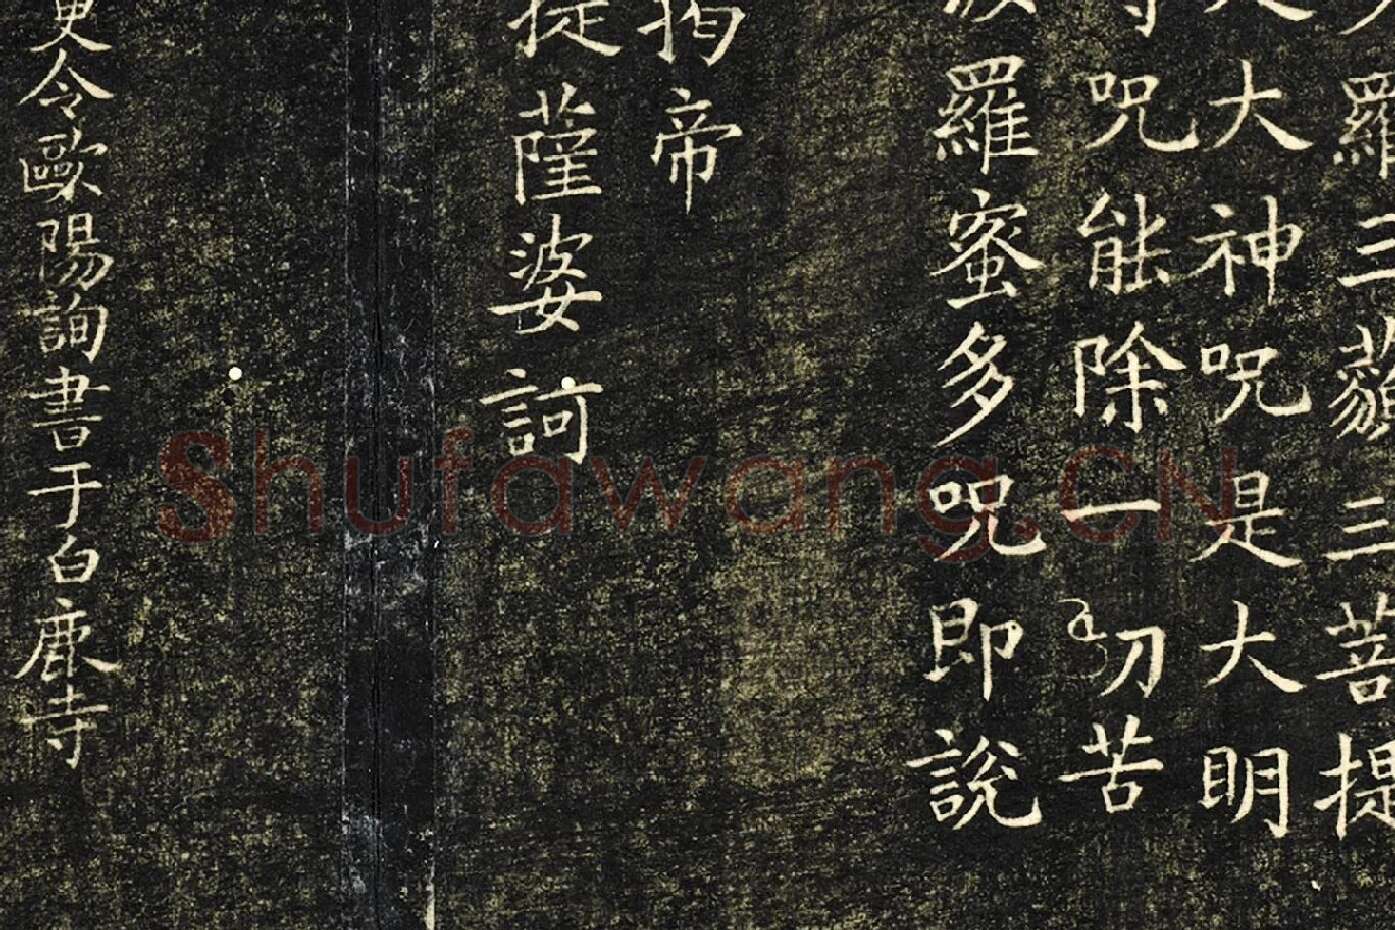 羅三藐三菩提
是大神呪是大眀
等呪能除一切苦
波羅蜜多呪即說
揭帝
提薩婆訶
更令歐陽詢書于白鹿寺
Shufawang.CN